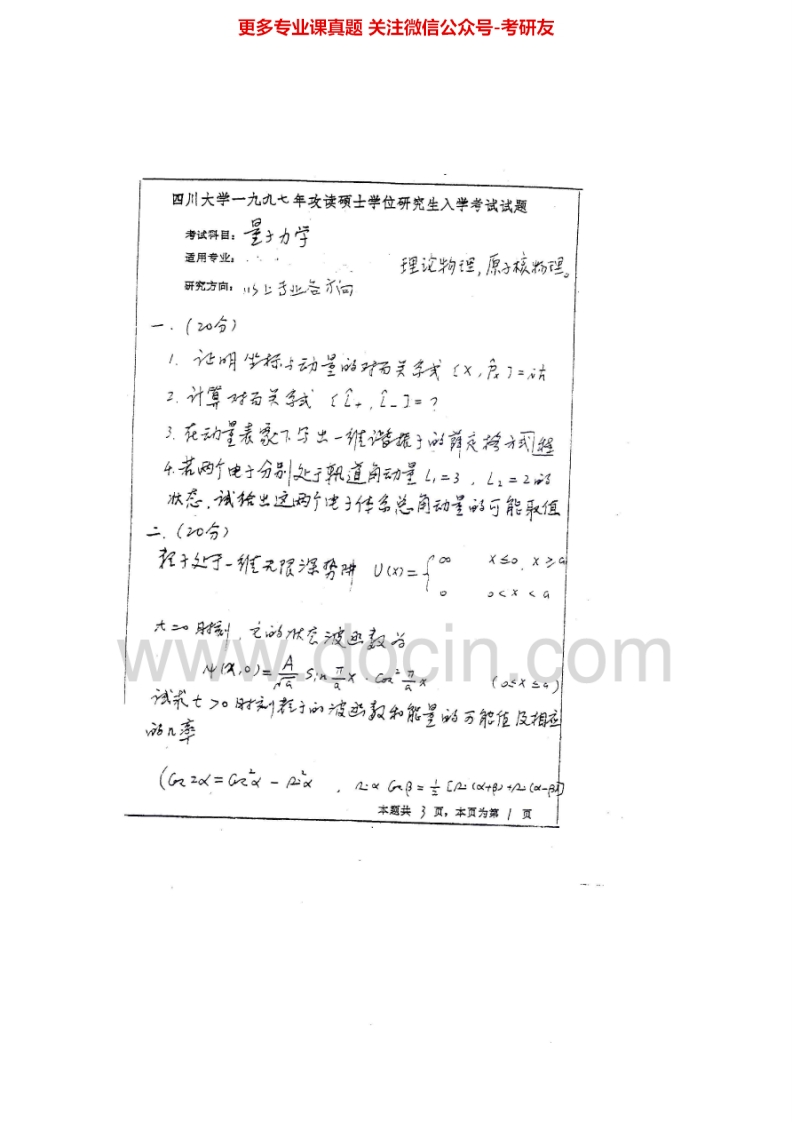 更多专业课真题 关注微信公众号-考研友
四川大学一九九七年攻读硕士学位研究生入学考试试题
考试科目：量子力学
适用专业： 理论物理，原子核物理。
研究方向：以上专业各方向
一．(20分)
1. 证明坐标与动量的对易关系式 [x, p̂x]=iħ
2. 计算对易关系式 [L̂+, L̂-]=?
3. 在动量表象下写出一维谐振子的薛定格方式程
4. 若两个电子分别处于轨道角动量 L₁=3, L₂=2的
状态，试给出这两个电子体系总角动量的可能取值
二．(20分)
粒子处于一维无限深势阱 U(x)={ ∞ x≤0, x≥a
0 0<x<a
t=0时刻，它的状态波函数为
www.docin.com
ψ(x,0)= A/√a Sin π/a x · Cos² π/a x (0≤x≤a)
试求t>0时刻粒子的波函数和能量的可能值及相应
的几率
(Cos2α=Cos²α - Sin²α , Sinα Cosβ = ½ [Sin(α+β)+Sin(α-β)]
本题共 3 页，本页为第 1 页